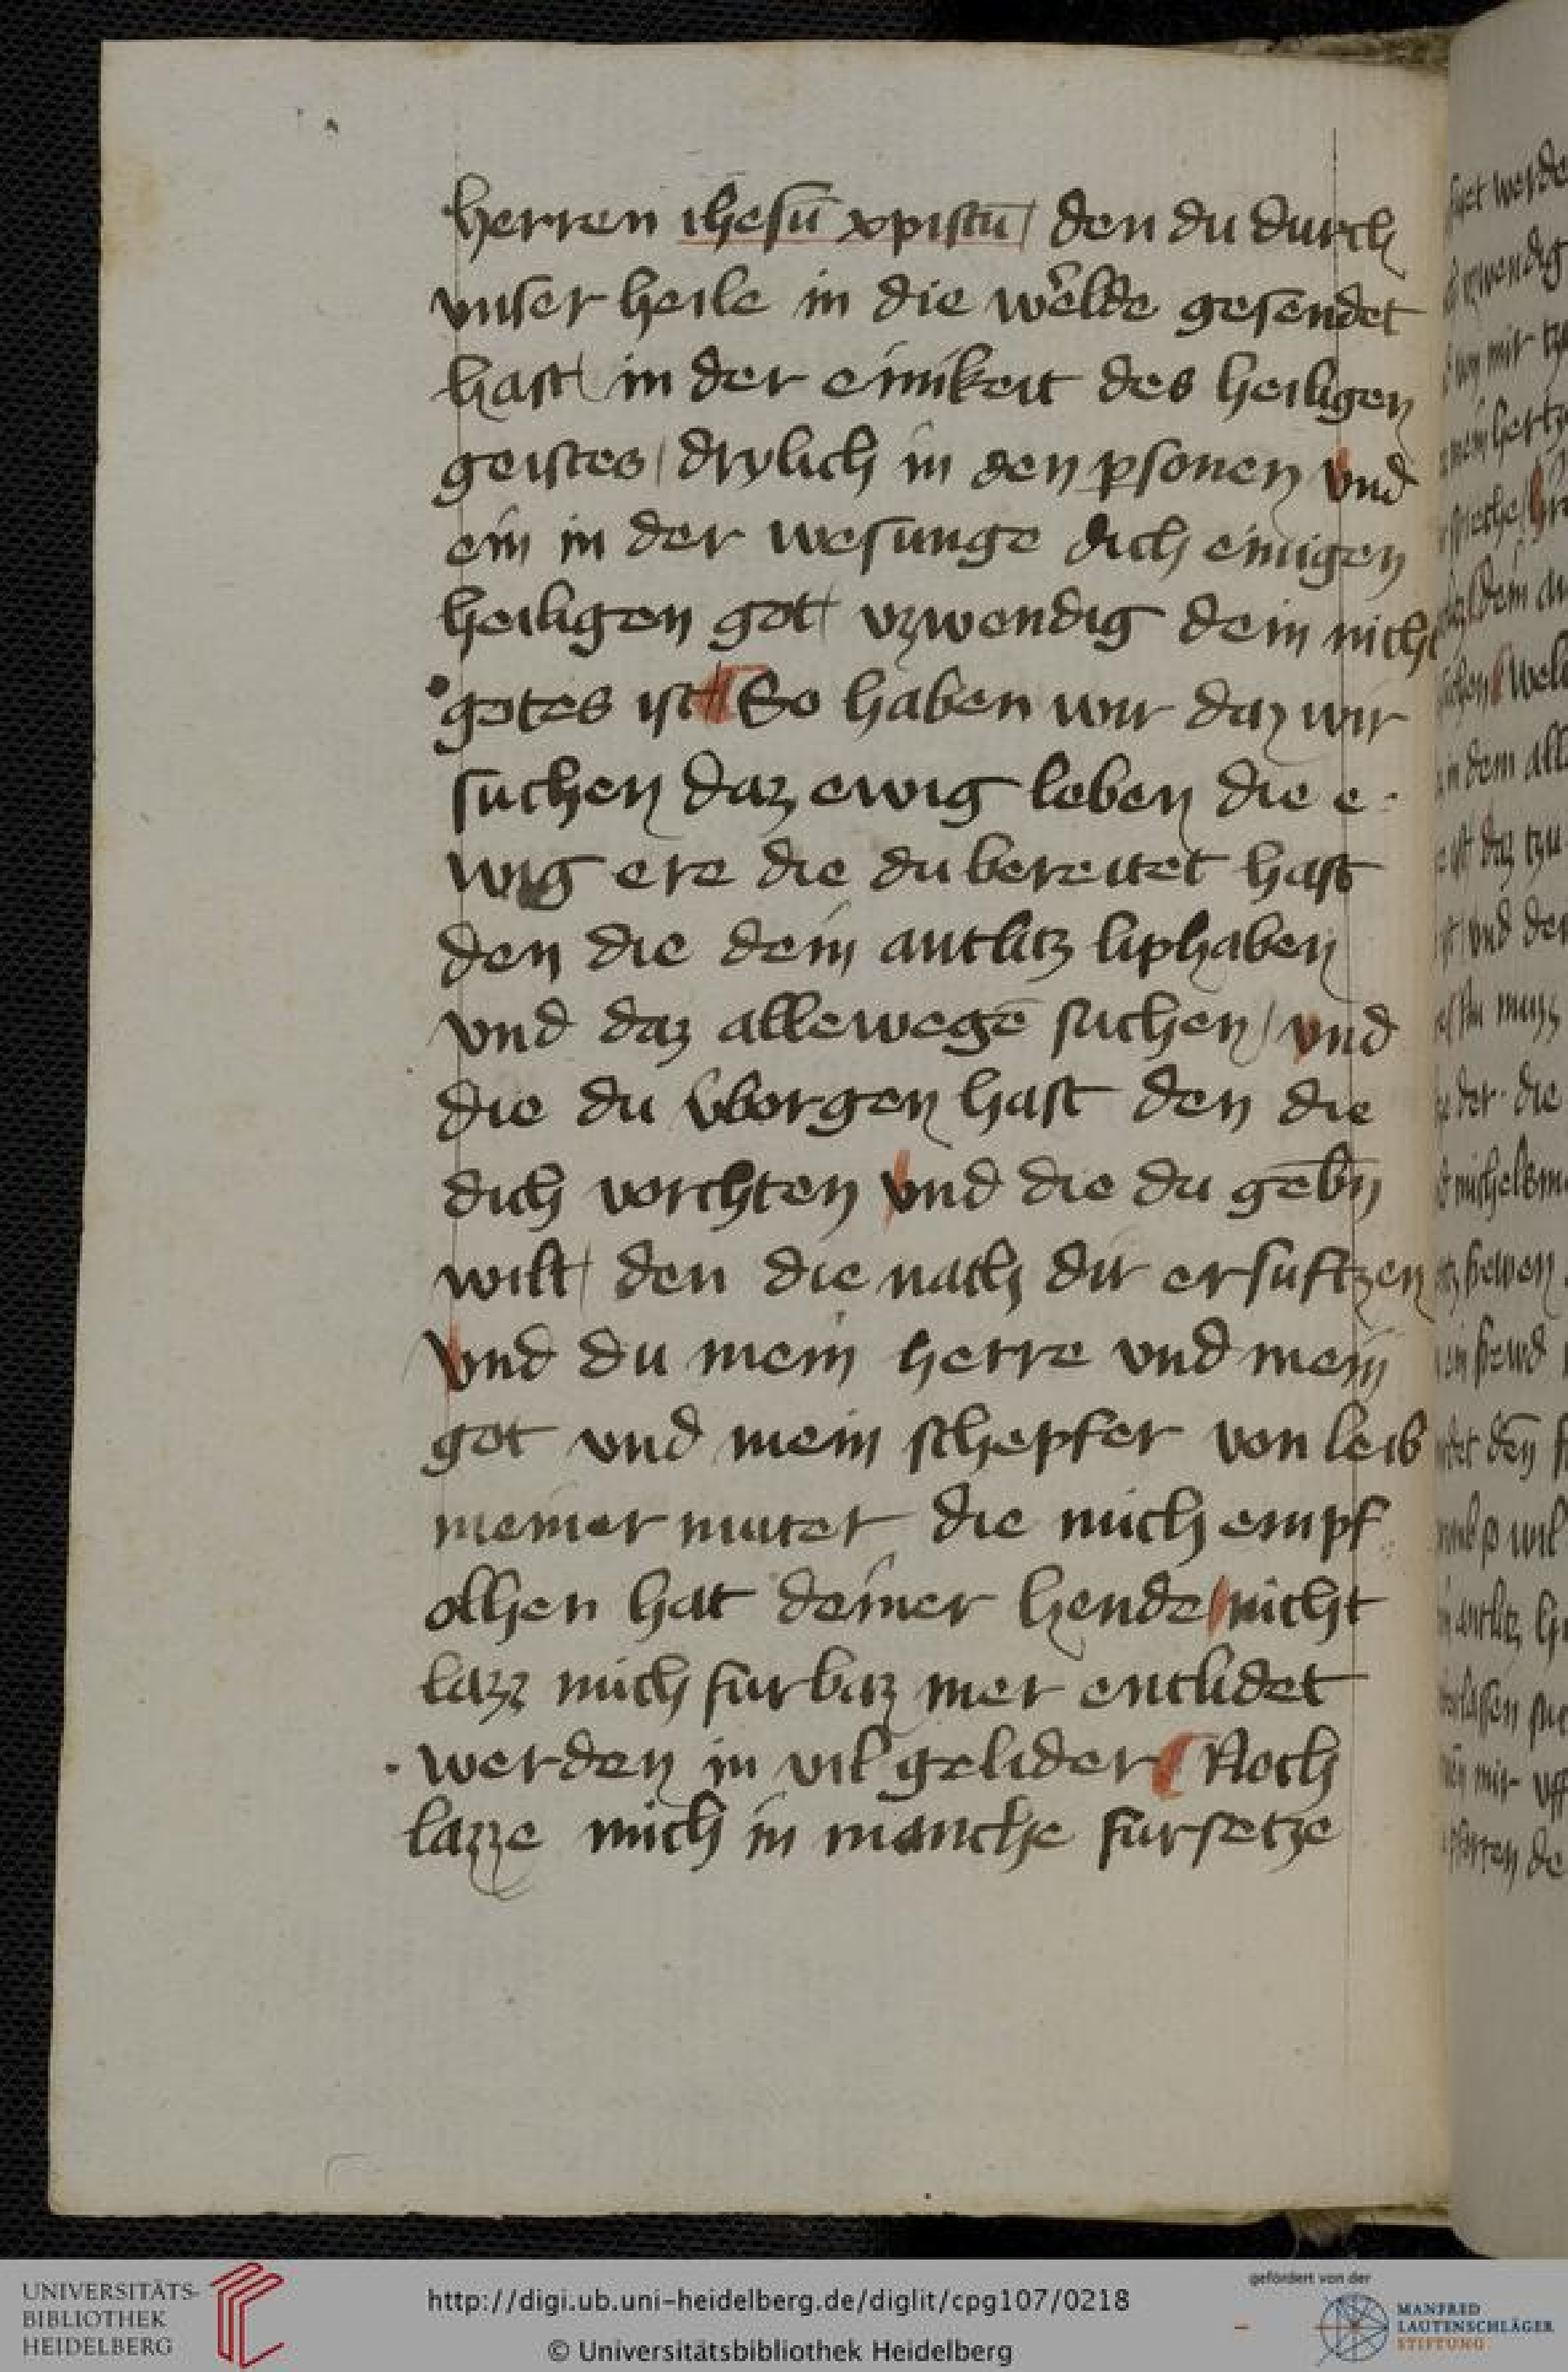 herren ihesū xpistū / den du durch
vnser heile in die welde gesendet
hast / in der einikeit des heiligen
geistes / drylich in den psonen vnd
ein in der wesunge dich einigen
heiligen got / vzwendig dem nicht
gotes ist // So haben wir daz wir
suchen daz ewig leben die e-
wig ere die du bereitet hast
den die dein antlitz liphaben
vnd daz allewegē suchen / vnd
die du vborgen hast den die
dich vorchten vnd die du gebn̄
wilt / den die nach dir ersuftzen
vnd du mein herre vnd mein
got vnd mein schepfer von leib
meiner muter die mich empf
olhen hat deiner hende / nicht
lazz mich furbaz mer entlidet
werden in vil gelider / Noch
lazze mich in manche fursetze
UNIVERSITÄTS-
BIBLIOTHEK
HEIDELBERG
http://digi.ub.uni-heidelberg.de/diglit/cpg107/0218
© Universitätsbibliothek Heidelberg
gefördert von der
MANFRED
LAUTENSCHLÄGER
STIFTUNG